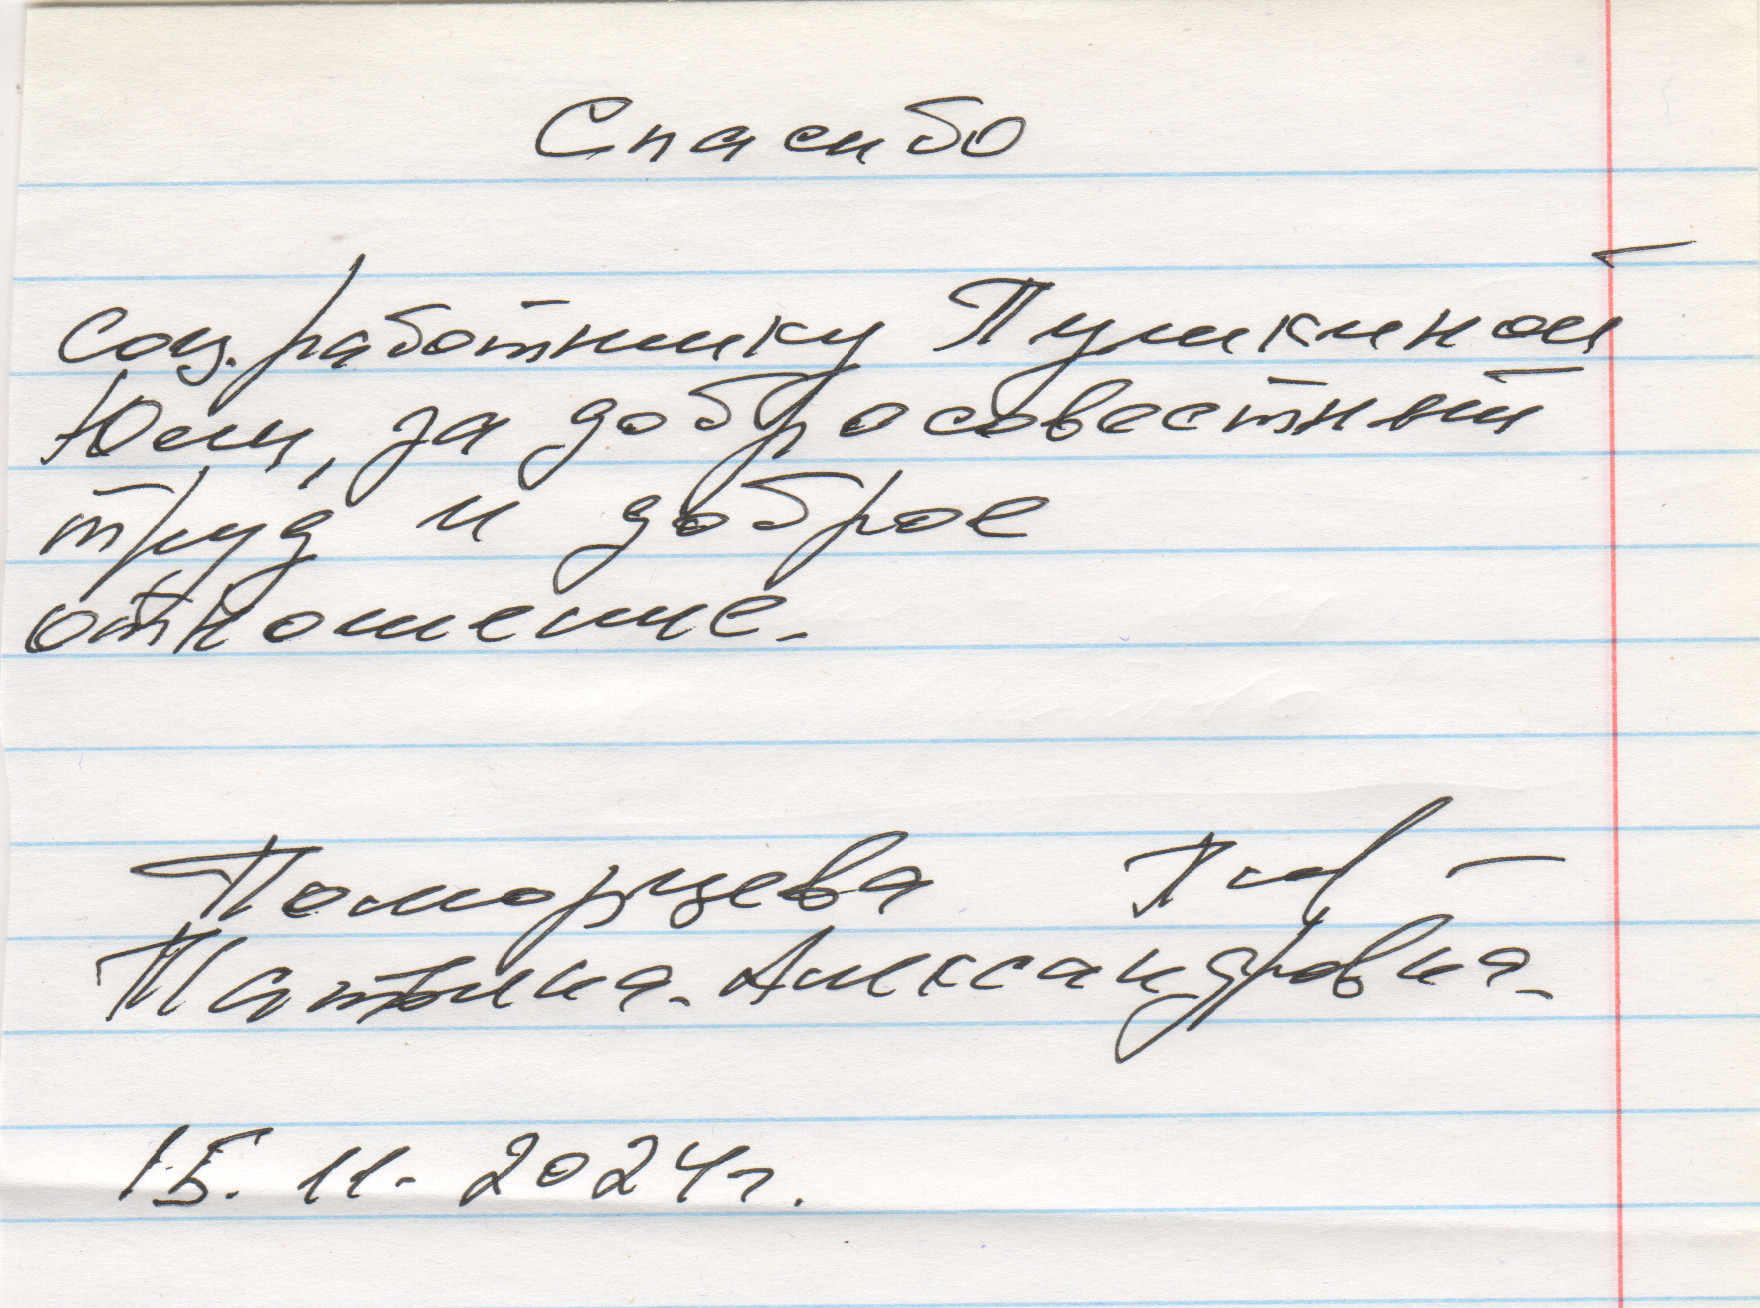 Спасибо
соц. работнику Пушкиной
Юли, за добросовестный
труд и доброе
отношение.
Поморцева
Татьяна. Александровна.
15. 11. 2024г.